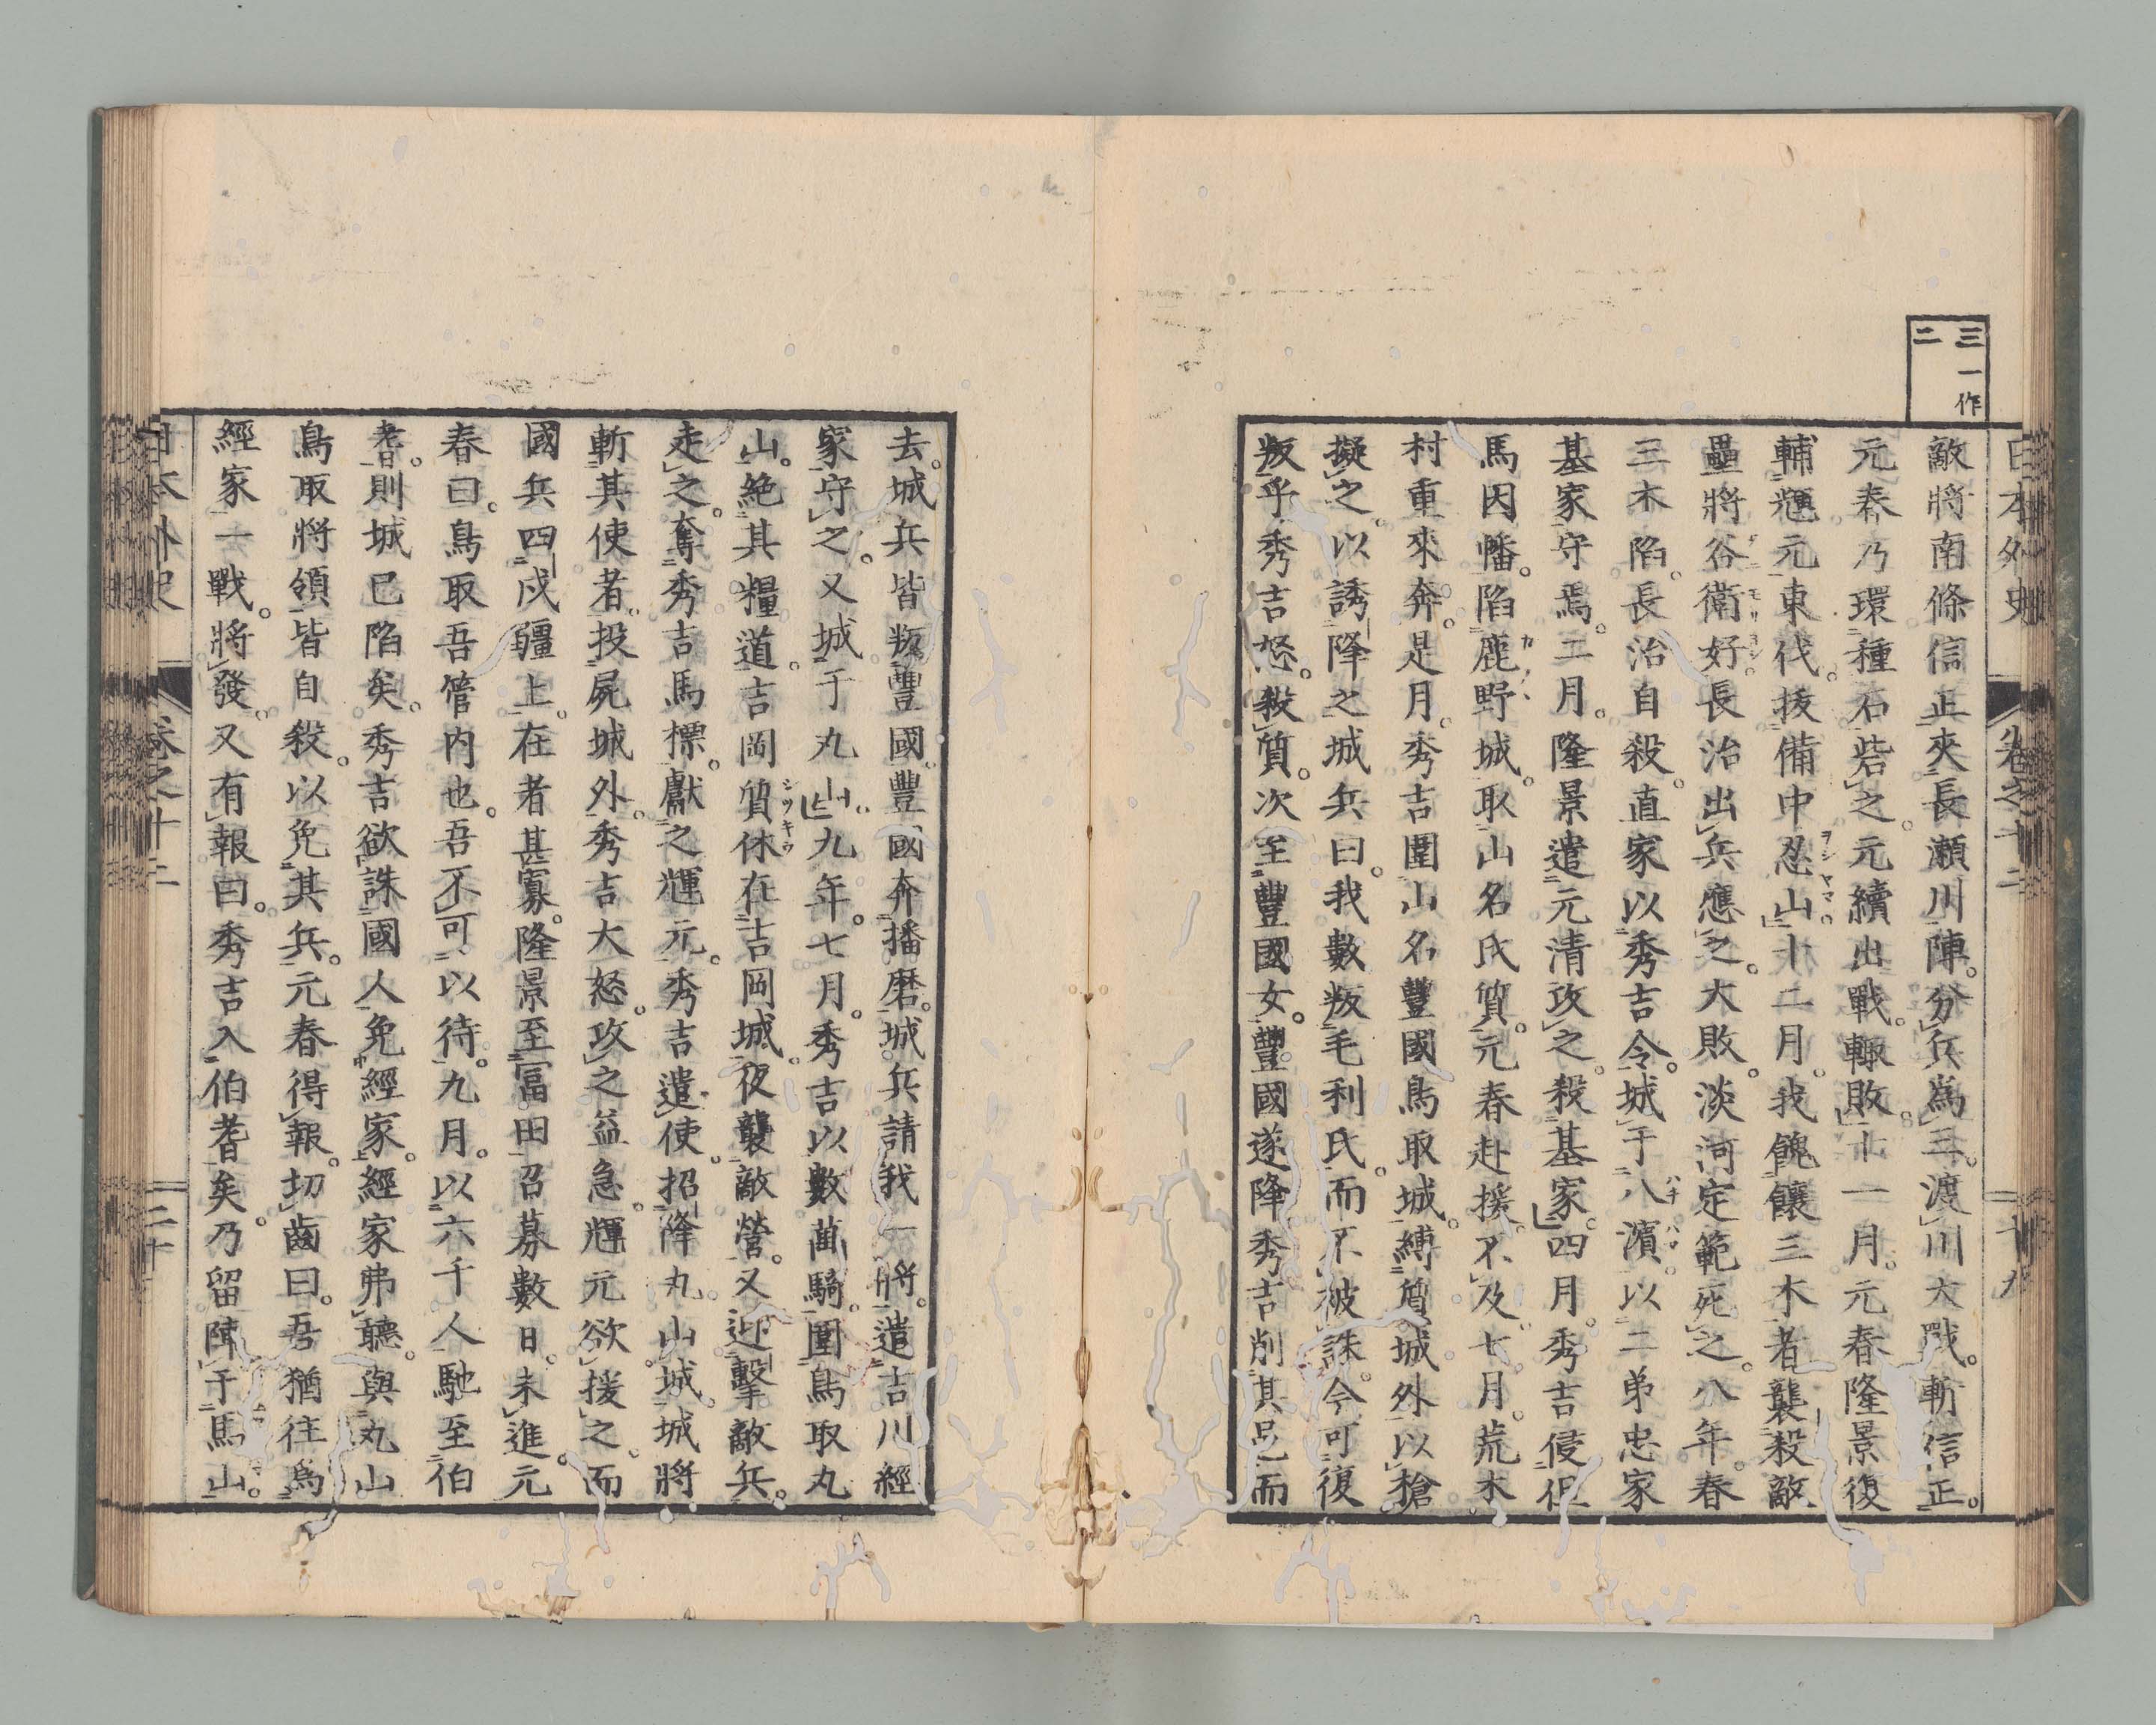 三一作
二
日本外史 卷之十二 十九
敵將南條信正夾長瀬川陣。分兵爲三。渡川大戰。斬信正。
元春乃環種石砦之。元續出戰。輙敗。十一月。元春隆景復
輔輝元東伐。援備中忍山。十二月。我餽饟三木者襲殺敵
壘將谷衛好。長治出兵應之。大敗。淡河定範死之。八年。春
三木陷。長治自殺。直家以秀吉令。城于八濱。以二弟忠家
基家守焉。二月。隆景遣元清攻之。殺基家。四月。秀吉侵但
馬因幡。陷鹿野城。取山名氏質。元春赴援。不及。七月。荒木
村重來奔。是月。秀吉圍山名豐國鳥取城。縛質城外。以槍
擬之。以誘降之。城兵曰。我數叛毛利氏。而不被誅。今可復
叛乎。秀吉怒。殺質。次至豐國女。豐國遂降。秀吉削其邑而
去。城兵皆叛豐國。豐國奔播磨。城兵請我一將。遣吉川經
家守之。又城于丸山。九年。七月。秀吉以數萬騎。圍鳥取丸
山。絶其糧道。吉岡質休在吉岡城。夜襲敵營。又迎擊敵兵。
走之。奪秀吉馬標。獻之輝元。秀吉遣使。招降丸山城。城將
斬其使者。投屍城外。秀吉大怒。攻之益急。輝元欲援之。而
國兵四戍疆上。在者甚寡。隆景至富田召募數日。未進。元
春曰。鳥取吾管内也。吾不可以待。九月。以六千人馳至伯
耆。則城已陷矣。秀吉欲誅國人免經家。經家弗聽。與丸山
鳥取將領皆自殺。以免其兵。元春得報。切齒曰。吾猶往爲
經家一戰。將發。又有報曰。秀吉入伯耆矣。乃留陣于馬山。
日本外史 卷之十二 二十